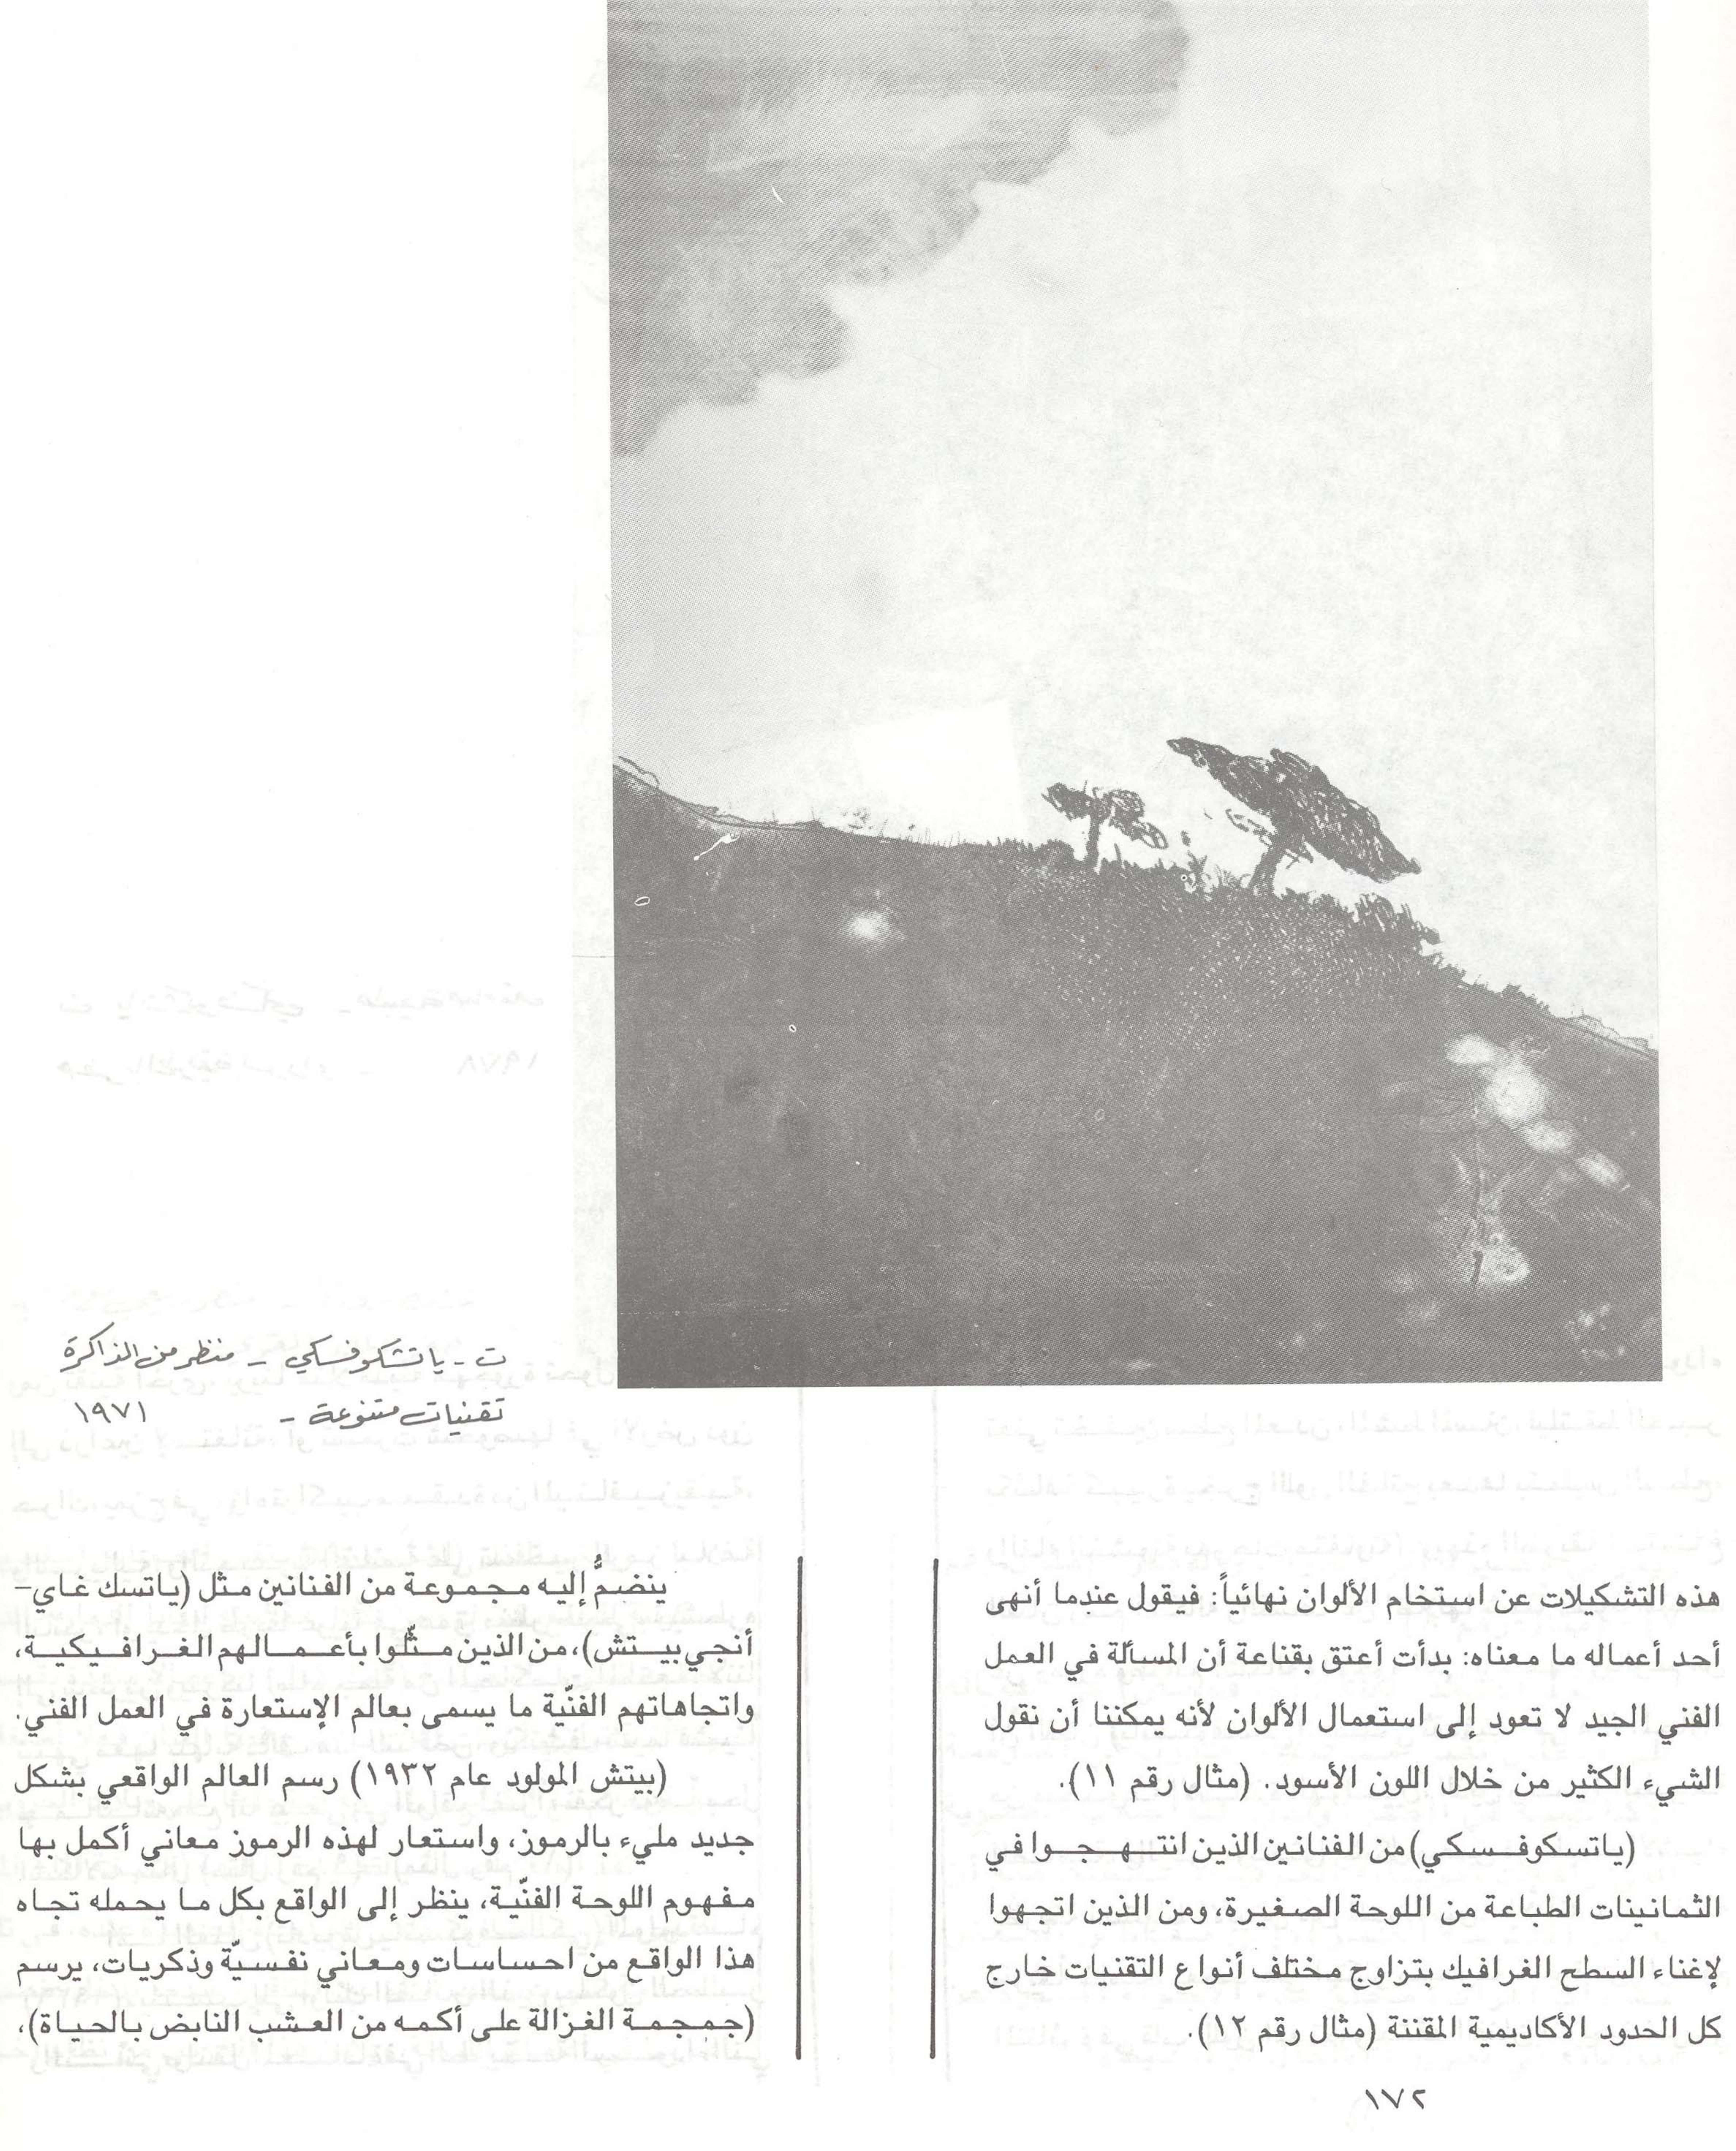 ت - ياتشكوفسكي - منظر من الذاكرة
تقنيات متنوعة - ١٩٧١
هذه التشكيلات عن استخام الألوان نهائياً: فيقول عندما أنهى
أحد أعماله ما معناه: بدأت أعتق بقناعة أن المسألة في العمل
الفني الجيد لا تعود إلى استعمال الألوان لأنه يمكننا أن نقول
الشيء الكثير من خلال اللون الأسود. (مثال رقم ١١).
(ياتسكوفسكي) من الفنانين الذين انتهجوا في
الثمانينات الطباعة من اللوحة الصغيرة، ومن الذين اتجهوا
لإغناء السطح الغرافيك بتزاوج مختلف أنواع التقنيات خارج
كل الحدود الأكاديمية المقننة (مثال رقم ١٢).
ينضمُّ إليه مجموعة من الفنانين مثل (ياتسك غاي-
أنجي بيتش)، من الذين مثّلوا بأعمالهم الغرافيكية،
واتجاهاتهم الفنّية ما يسمى بعالم الإستعارة في العمل الفني.
(بيتش المولود عام ١٩٣٢) رسم العالم الواقعي بشكل
جديد مليء بالرموز، واستعار لهذه الرموز معاني أكمل بها
مفهوم اللوحة الفنّية، ينظر إلى الواقع بكل ما يحمله تجاه
هذا الواقع من احساسات ومعاني نفسيّة وذكريات، يرسم
(جمجمة الغزالة على أكمه من العشب النابض بالحياة)،
١٧٢